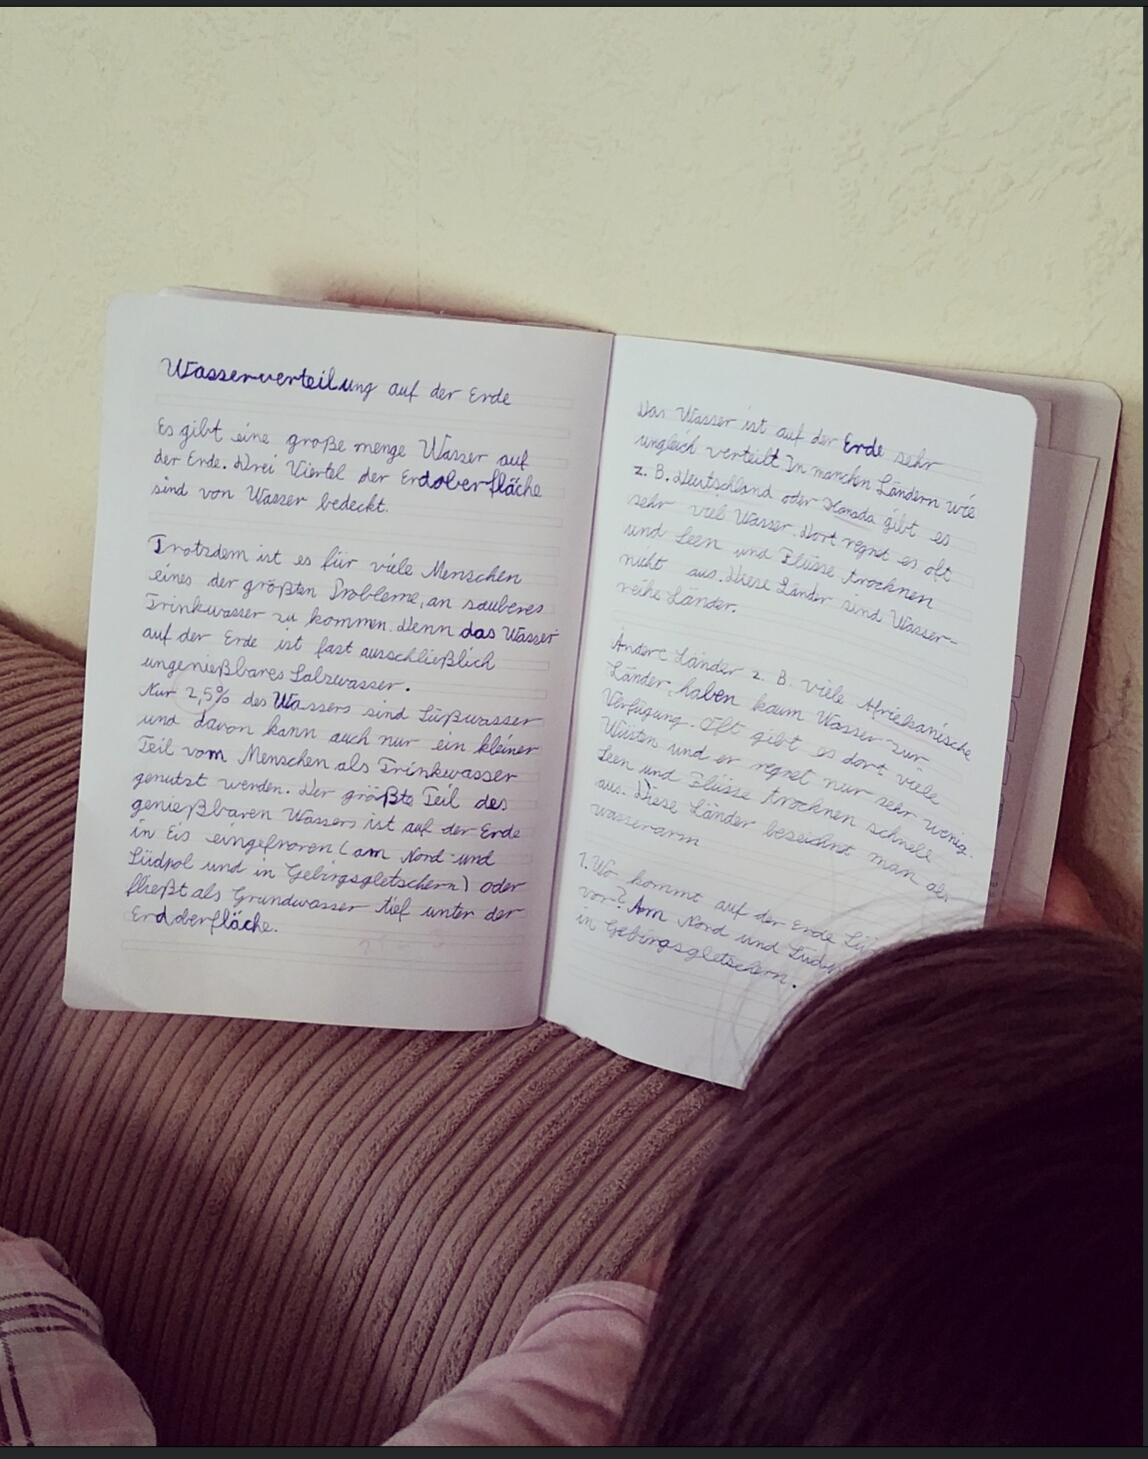 Wasserverteilung auf der Erde
Es gibt eine große menge Wasser auf
der Erde. Drei Viertel der Erdoberfläche
sind von Wasser bedeckt.
Trotzdem ist es für viele Menschen
eines der größten Probleme, an sauberes
Trinkwasser zu kommen. Denn das Wasser
auf der Erde ist fast ausschließlich
ungenießbares Salzwasser.
Nur 2,5% des Wassers sind Süßwasser
und davon kann auch nur ein kleiner
Teil vom Menschen als Trinkwasser
genutzt werden. Der größte Teil des
genießbaren Wassers ist auf der Erde
in Eis eingefroren (am Nord-und
Südpol und in Gebirgsgletschern) oder
fließt als Grundwasser tief unter der
Erdoberfläche.
Das Wasser ist auf der Erde sehr
ungleich verteilt. In manchen Ländern wie
z. B. Deutschland oder Kanada gibt es
sehr viel Wasser. Dort regnet es oft
und Seen und Flüsse trocknen
nicht aus. Diese Länder sind Wasser-
reihe Länder.
Andere Länder z. B. viele Afriekanische
Länder, haben kaum Wasser zur
Verfügung. Oft gibt es dort viele
Wüsten und er regnet nur sehr wenig.
Seen und Flüsse trocknen schnell
aus. Diese Länder bezeichnet man als
wasserarm
1. Wo kommt auf der Erde
vor? Am Nord und
in Gebirgsgletschern.